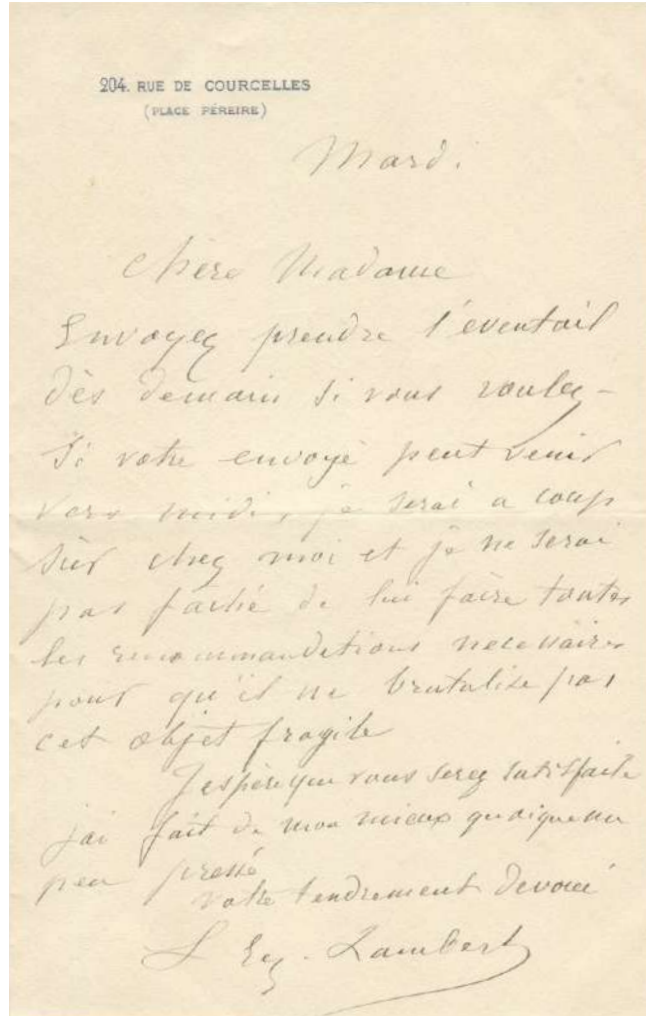 204. RUE DE COURCELLES
(PLACE PÉREIRE)
Mardi
Chère Madame
Envoyez prendre l'eventail
dès demain si vous voulez –
Si votre envoyé peut venir
vers midi, je serai a coup
sûr chez moi et je ne serai
pas faché de lui faire toutes
les recommandations necessaires
pour qu'il ne brutalise pas
cet objet fragile
J'espère que vous serez satisfaite
j'ai fait de mon mieux quoique un
peu pressé
votre tendrement devoué
L Eug. Lambert